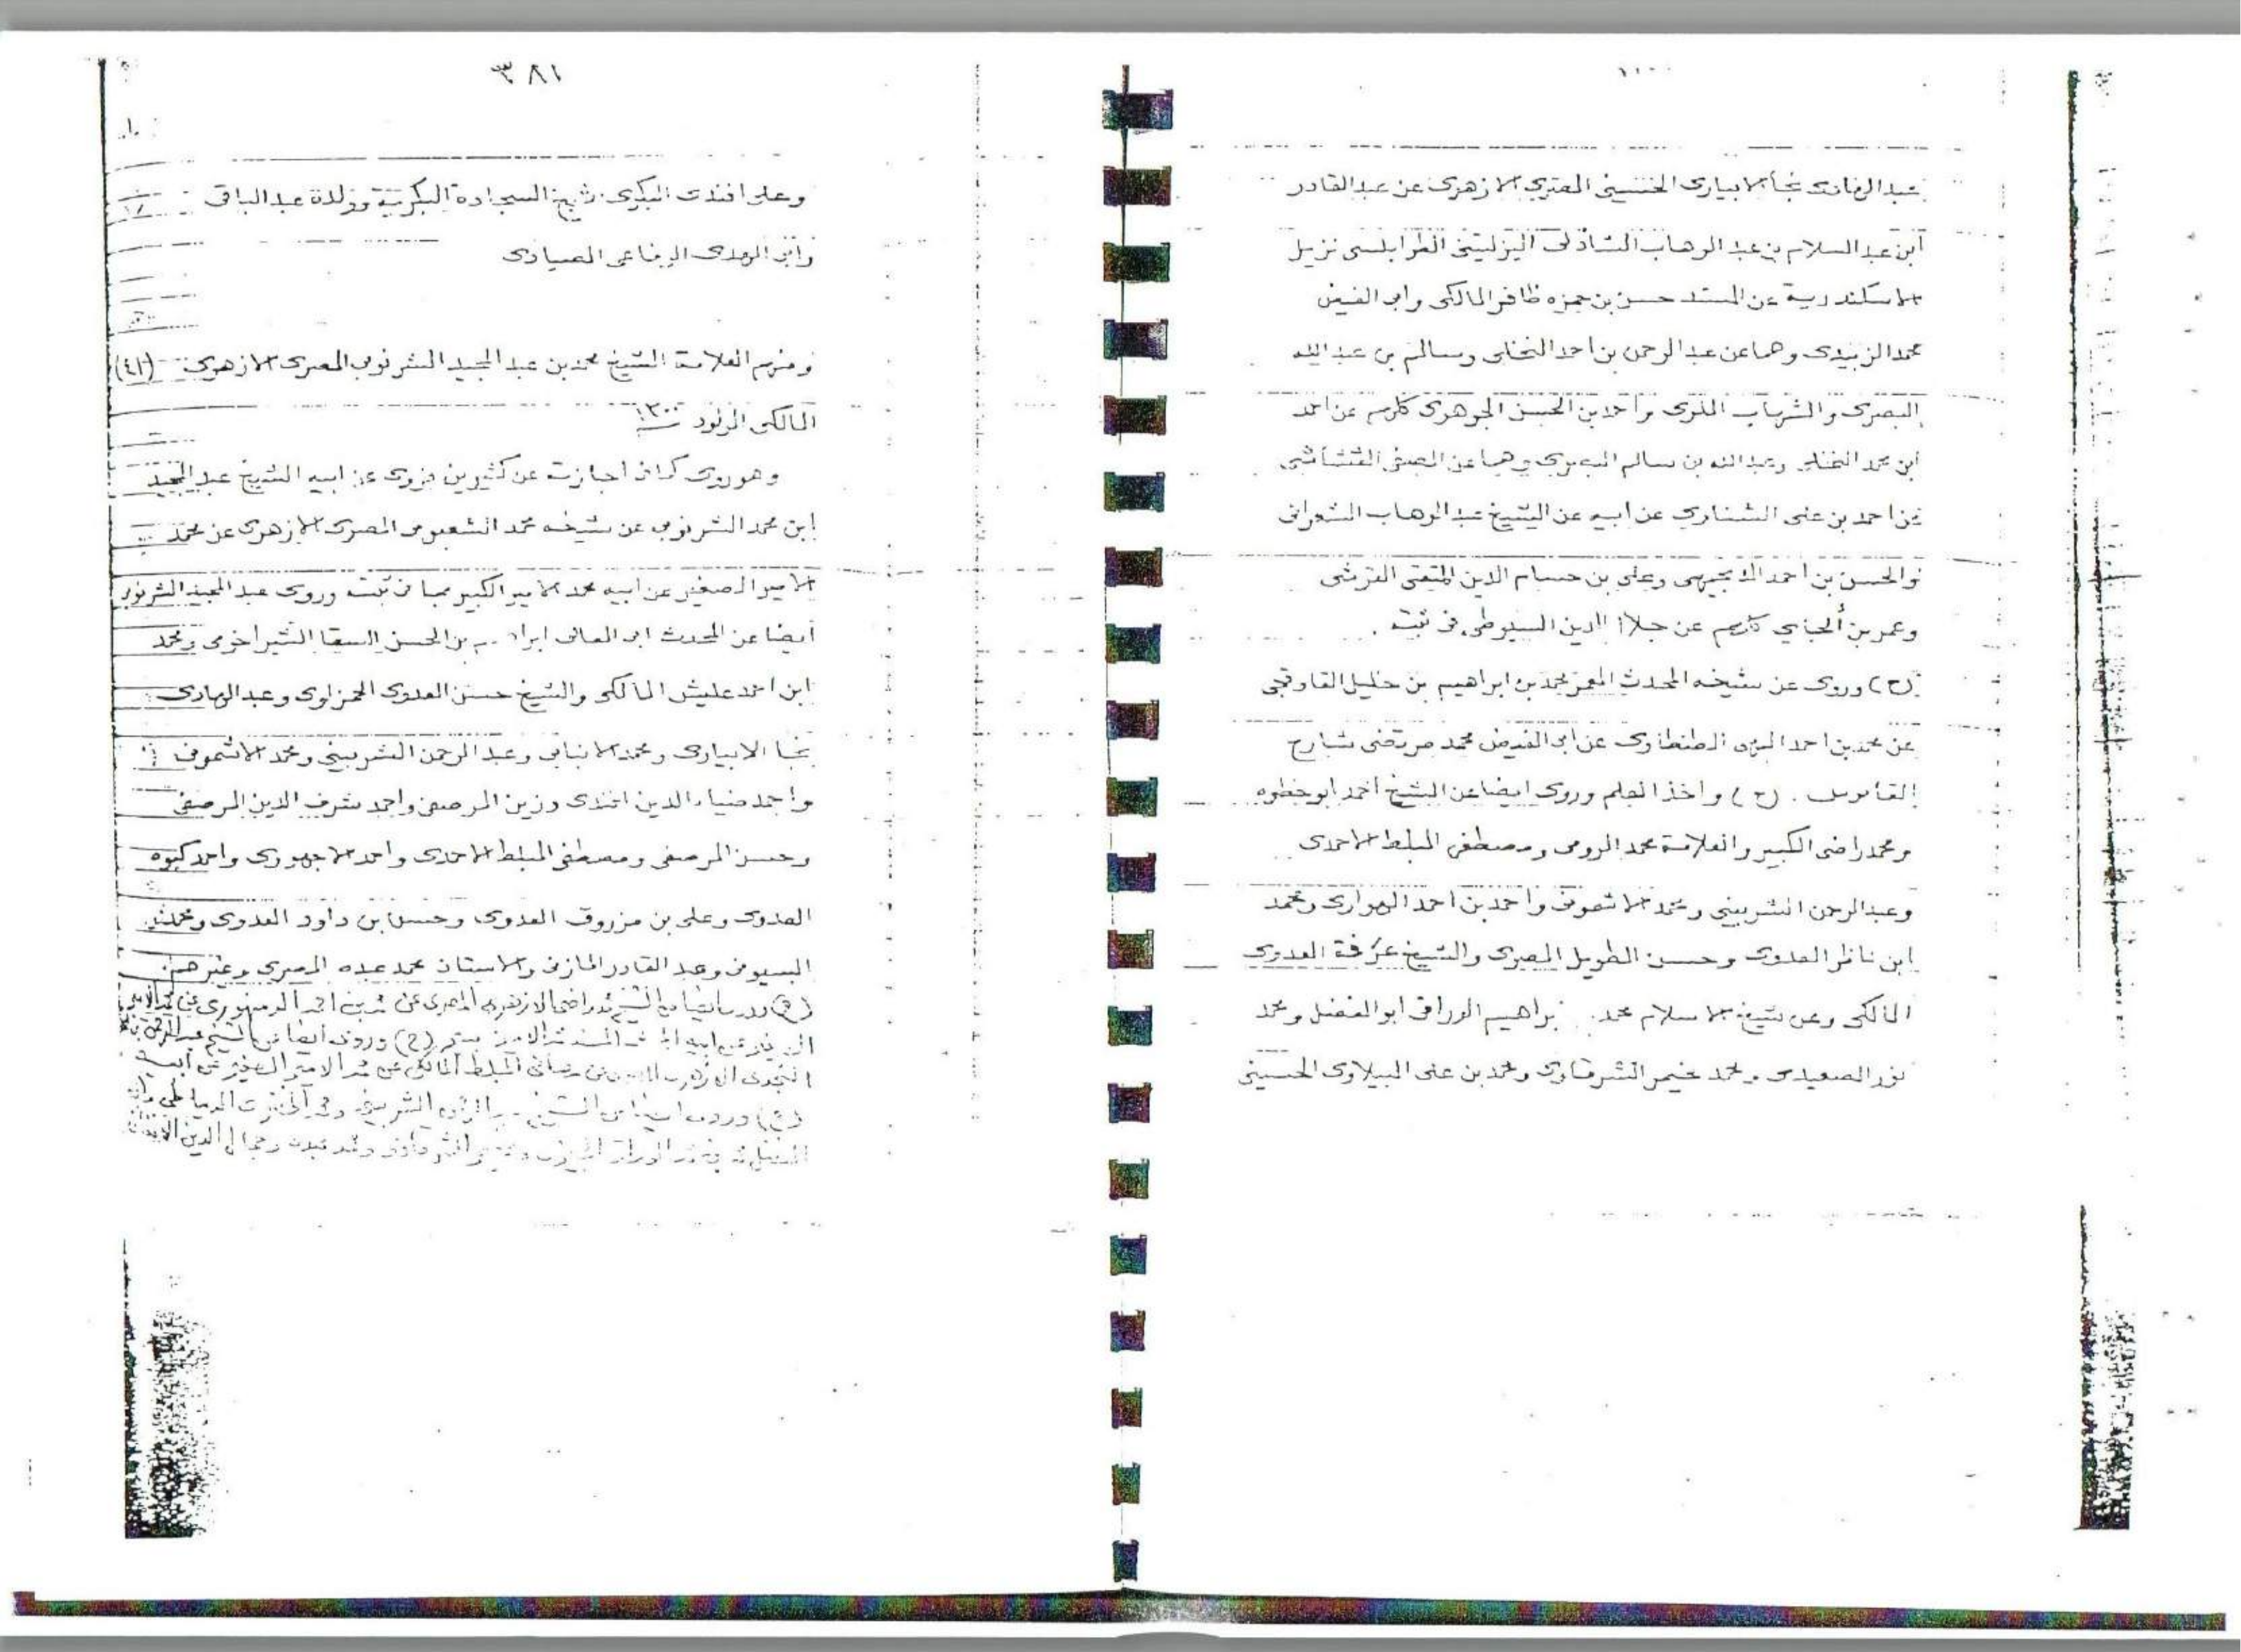 عبد الهادى نجا الابيارى الحسينى المصرى الازهرى عن عبد القادر
ابن عبد السلام بن عبد الوهاب الشاذلى اليزليتنى الطرابلسى نزيل
الاسكندرية عن المسند حسن بن حمزه ظافر المالكى وابى الفيض
محمد الزبيدى وهما عن عبد الرحمن بن احمد النخلى وسالم بن عبد الله
البصرى والشهاب الملوى واحمد بن الحسن الجوهرى كلهم عن احمد
ابن محمد النخلى وعبد الله بن سالم البصرى وهما عن الصفى القشاشى
عن احمد بن على الشناوى عن ابيه عن الشيخ عبد الوهاب الشعرانى
والحسن بن احمد الدنجيهى وعلى بن حسام الدين المتقى القرشى
وعمر بن ألجاي كلهم عن جلال الدين السيوطى فى ثبته .
(ح) وروى عن شيخه المحدث المعمر محمد بن ابراهيم بن خليل القاوقجى
عن محمد بن احمد البهى الطنطاوى عن ابى الفيض محمد مرتضى شارح
القاموس . (ح) واخذ العلم وروى ايضا عن الشيخ احمد ابو خطوه
ومحمد راضى الكبير والعلامة محمد الرومى ومصطفى المبلط الاحمدى
وعبد الرحمن الشربينى ومحمد الاشمونى واحمد بن احمد الهوارى ومحمد
ابن ناظر العدوى وحسن الطويل المصرى والشيخ عرفة العدوى
المالكى وعن شيخ الاسلام محمد ابراهيم الوراقى ابو الفضل ومحمد
نور الصعيدى ومحمد غنيم الشرقاوى ومحمد بن على الببلاوى الحسينى
٣٨١
وعلى افندى البكرى شيخ السجادة البكرية وولده عبد الباقى
وابى الهدى الرفاعى الصيادى
ومنهم العلامة الشيخ محمد بن عبد المجيد الشرنوبى المصرى الازهرى (٤١)
المالكى المولود سنة ١٣٠٠
وهو روى كما فى اجازته عن كثيرين فروى عن ابيه الشيخ عبد المجيد
ابن محمد الشرنوبى عن شيخه محمد الشعبومى المصرى الازهرى عن محمد
الامير الصغير عن ابيه محمد الامير الكبير بما فى ثبته وروى عبد المجيد الشرنوبى
ايضا عن المحدث ابى المعالى ابراهيم بن الحسن السقا الشبراخومى ومحمد
ابن احمد عليش المالكى والشيخ حسن العدوى الحمزاوى وعبد الهادى
نجا الابيارى ومحمد الانبابى وعبد الرحمن الشربينى ومحمد الاشمونى
واحمد ضياء الدين افندى وزين المرصفى واحمد شرف الدين المرصفى
وحسن المرصفى ومصطفى المبلط الاحمدى واحمد الاجهورى واحمد كبوه
العدوى وعلى بن مرزوق العدوى وحسن بن داود العدوى ومحمد
البسيونى وعبد القادر المازنى والاستاذ محمد عبده المصرى وغيرهم
(ح) وروى ايضا عن الشيخ محمد راضى الازهرى المصرى عن محمد بن احمد الدمنهورى عن محمد الامير
الصغير عن ابيه (ح) وروى ايضا عن الشيخ عبد الرحمن
المبلط المالكى عن محمد الامير الصغير عن ابيه
(ح) وروى ايضا عن الشيخ الشربينى الدمياطى
الشرقاوى ومحمد عبده وجمال الدين